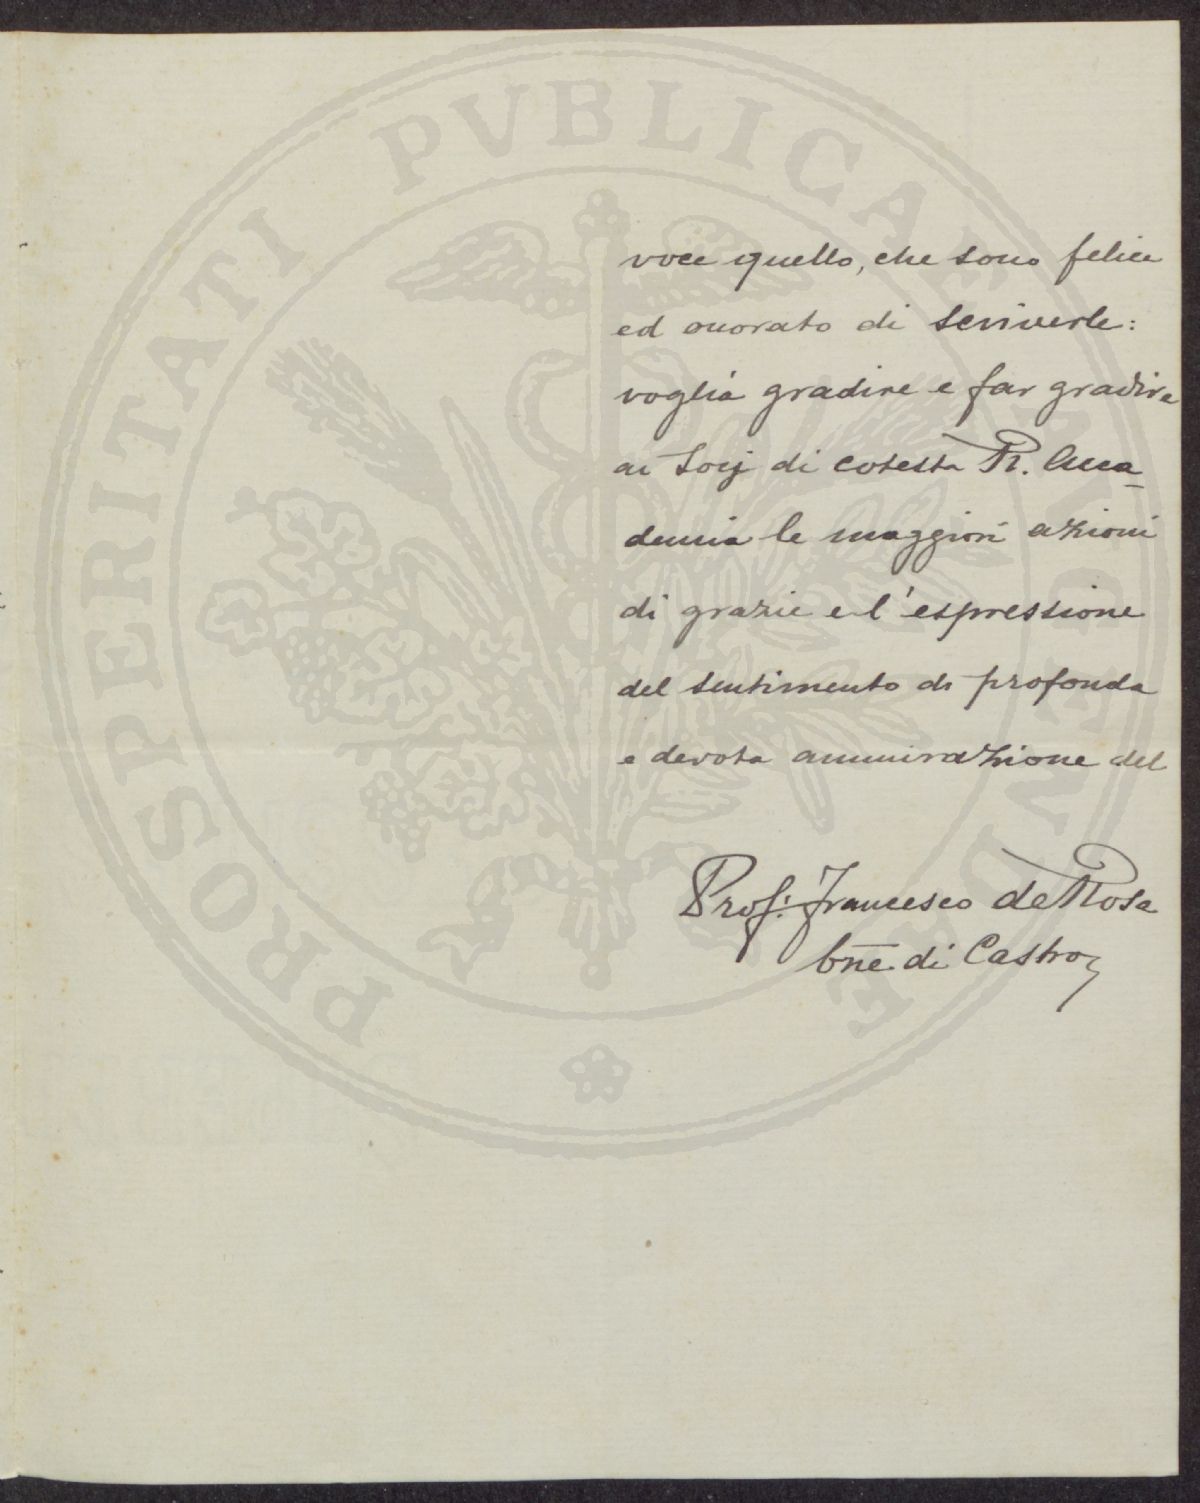 voce quello, che sono felice
ed onorato di scriverle:
voglia gradire e far gradire
ai Socj di cotesta R. Acca-
demia le maggiori azioni
di grazie e l'espressione
del sentimento di profonda
e devota ammirazione del
Prof: Francesco de Rosa
Bne. di Castro
PROSPERITATI PVBLICAE AVGENDAE